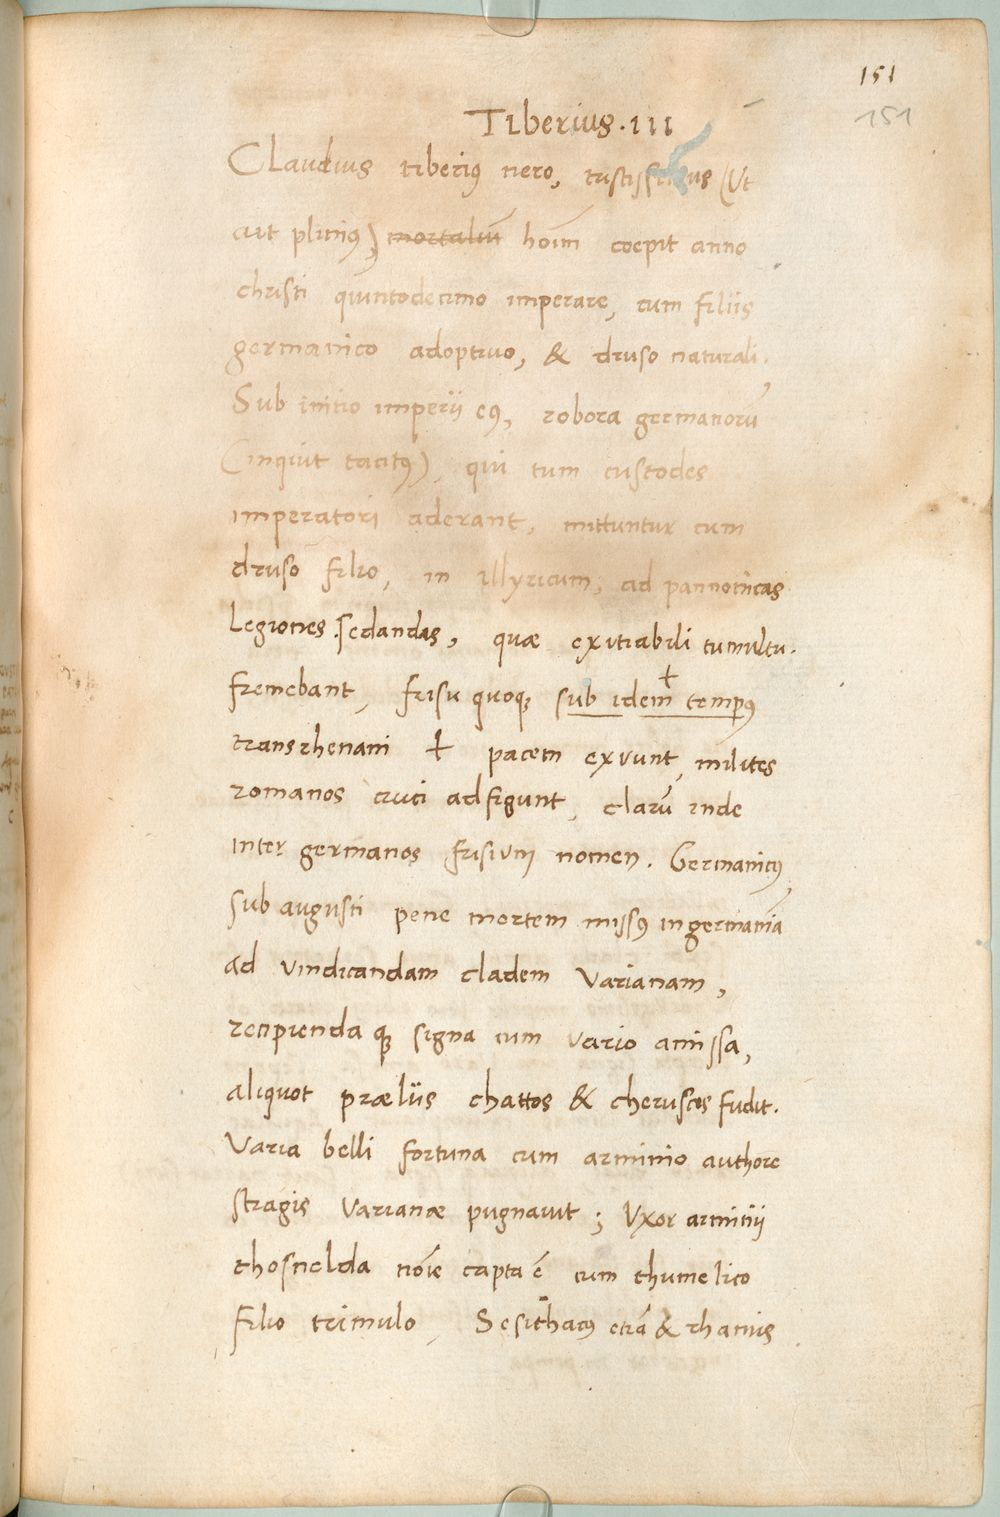 151
151
Tiberius · III
Claudius tiberiꝰ nero, tristissimus (Ut
ait pliniꝰ) mortaliū hoīm coepit anno
christi quintodecimo imperare, cum filiis
germanico adoptivo, & druso naturali.
Sub initio imperii eꝰ, robora germanorū
(inquit tacitꝰ), qui tum custodes
imperatori aderant, mittuntur cum
druso filio, in illyricum, ad pannonicas
Legiones sedandas, quæ exitiabili tumultu.
fremebant, frisii quoqꝫ sub idem̄ tempꝰ
transrhenani + pacem exuunt, milites
romanos cruci adfigunt, clarū inde
inter germanos frisium nomen. Germanicꝰ
sub augusti pene mortem missꝰ in germaniā
ad vindicandam cladem Varianam,
recipienda qꝫ signa cum vario amissa,
aliquot præliis chattos & cheruscos fudit.
Varia belli fortuna cum arminio authore
stragis Varianæ pugnavit; Uxor arminii
thosnelda noīe capta ē cum thumelico
filio trimulo, Sesithacꝰ etiā & rhamis